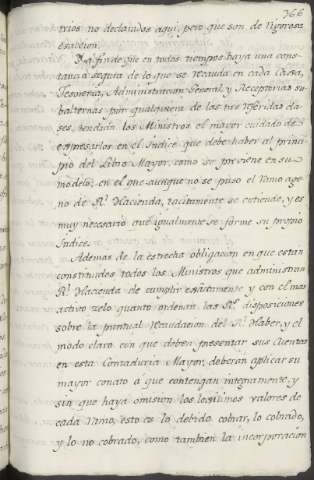 366
trios no declarados aqui, pero que son de rigorosa
esaccion.
A fin de que en todos tiempos haya una cons-
tancia seguia de lo que se recauda en cada Caxa,
Tesoreria, Administracion General, y Receptorias su-
balternas por qualquiera de las tres referidas cla-
ses, tendrán los Ministros el mayor cuidado de
expresarlos en el Indice que debe haber al princi-
pio del Libro Mayor, como se previene en su
modelo; en el que aunque no se puso el ramo age-
no de Rl. Hacienda, tacitamente se entiende, y es
muy necesario que igualmente se forme su propio
Indice.
Ademas de la estrecha obligacion en que estan
constituidos todos los Ministros que administran
Rl. Hacienda de cumplir esactamente y con el mas
activo zelo quanto ordenan las Rs. disposiciones
sobre la puntual recaudacion del Rl. Haber, y el
modo claro con que deben presentar sus Cuentas
en esta Contaduria Mayor, deberán aplicar su
mayor conato á que contengan integramente, y
sin que haya omision los legitimos valores de
cada ramo, esto es lo debido cobrar, lo cobrado,
y lo no cobrado, como tambien la incorporacion